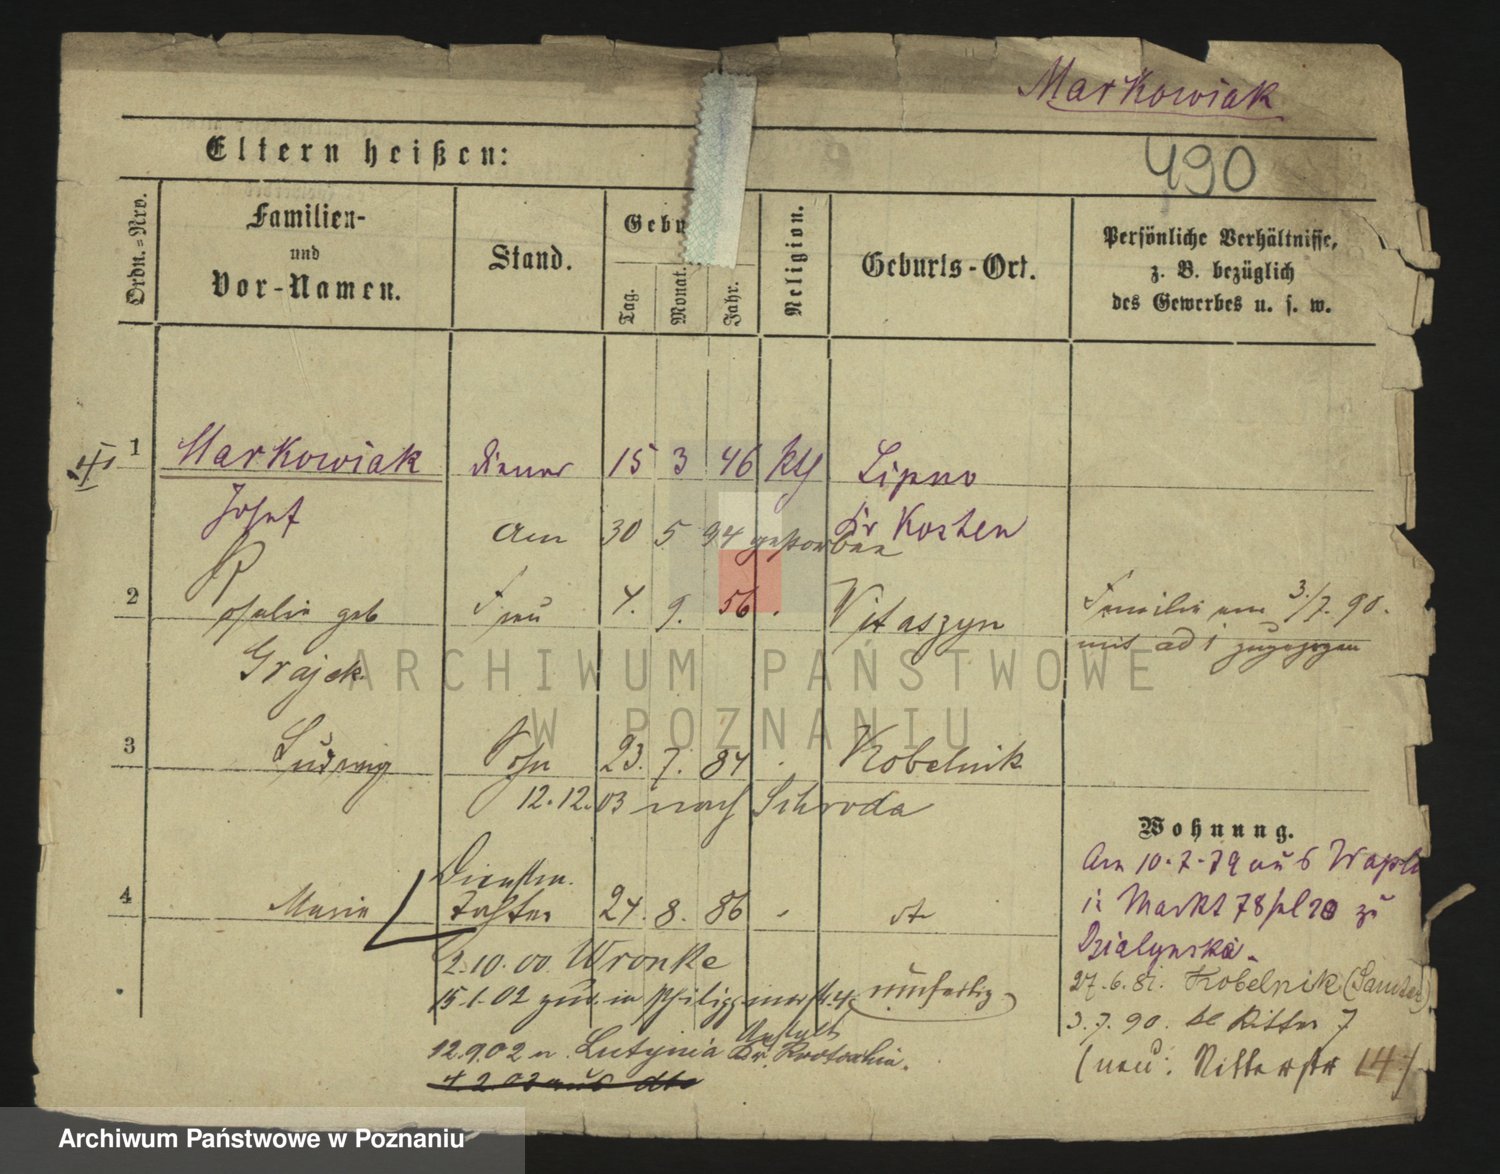 Markowiak
490
Eltern heißen:
Ordn.=Nro.
Familien-
und
Vor-Namen.
Stand.
Gebu
Tag.
Monat.
Jahr.
Religion.
Geburts-Ort.
Persönliche Verhältnisse,
z. B. bezüglich
des Gewerbes u. s. w.
1 Markowiak Diener 15 3 46 kth Lipno
Josef am 30 5 94 gestorben Kr Kosten
2 Rosalie geb Frau 4. 9. 56 Vitaszyn
Grajek
Familie am 3./7. 90.
mit ad 1 zugezogen
3 Ludwig Sohn 23. 7. 84 Kobelnik
12.12.03 nach Schroda
4 Marie Tochter 24. 8. 86 dt
2.10.00 Wronke
15.1.02 zur. in
12.9.02 n. Lutynia Kr. Krotoschin.
4.2.03 aus dto
Wohnung.
Am 10.7.79 aus
Markt 78 zu
Dzialynski.
27.6.81. Kobelnik (Samter)
3.7.90. Ritter 7
(neu: Ritterstr 14)
ARCHIWUM PAŃSTWOWE
W POZNANIU
Archiwum Państwowe w Poznaniu